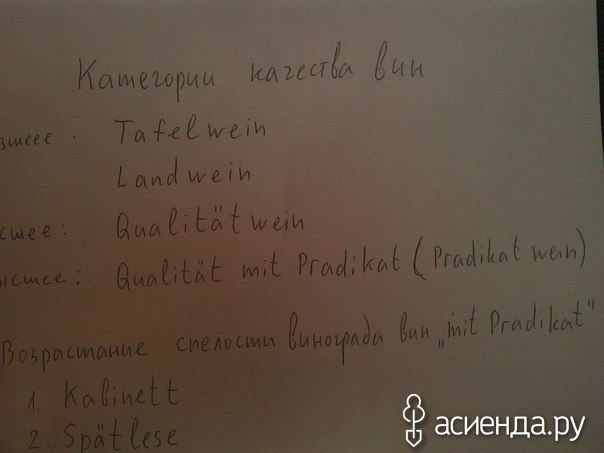 Категории качества вин
зшеее: Tafelwein
Landwein
сшее: Qualitätwein
ысшее: Qualität mit Pradikat (Pradikat wein)
Возрастание спелости винограда вин „mit Pradikat“
1. Kabinett
2. Spätlese
асиенда.ру